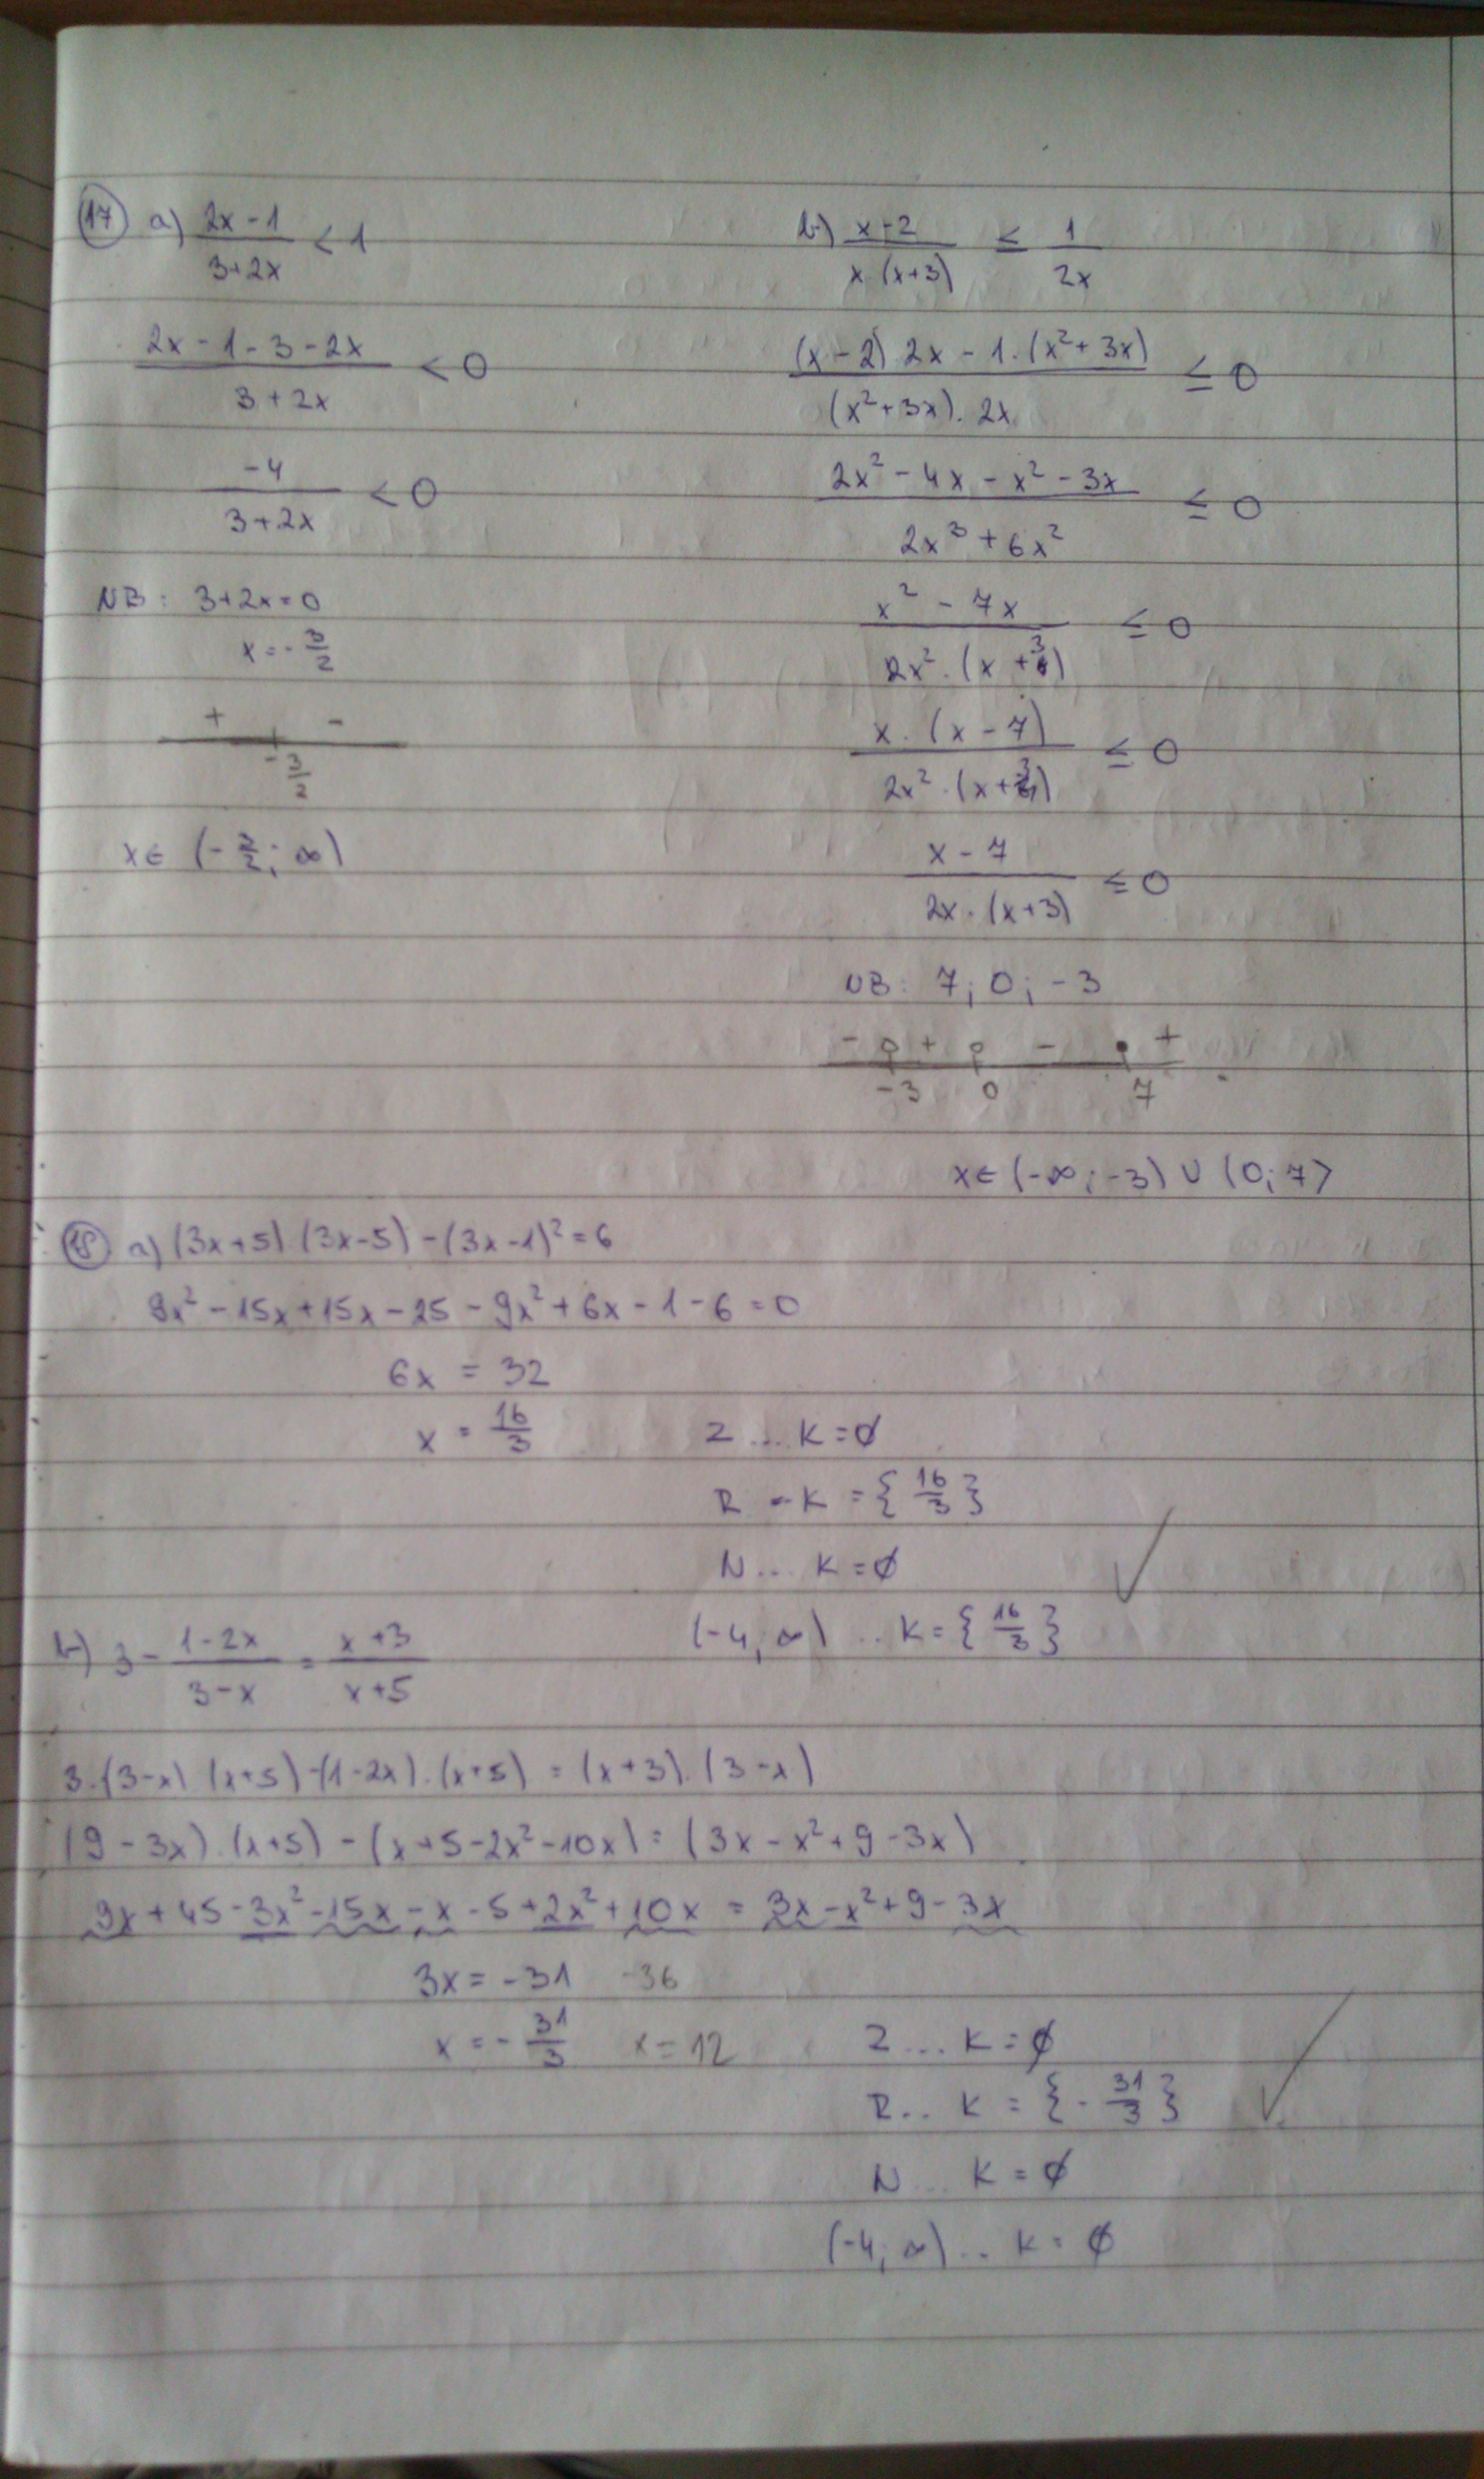 17 a) (2x-1)/(3+2x) < 1
(2x-1-3-2x)/(3+2x) < 0
-4/(3+2x) < 0
NB: 3+2x=0
x=-3/2
+ -
-3/2
x∈ (-3/2; ∞)
b) (x-2)/(x.(x+3)) ≤ 1/(2x)
((x-2).2x-1.(x²+3x))/((x²+3x).2x) ≤ 0
(2x²-4x-x²-3x)/(2x³+6x²) ≤ 0
(x²-7x)/(2x².(x+3)) ≤ 0
(x.(x-7))/(2x².(x+3)) ≤ 0
(x-7)/(2x.(x+3)) ≤ 0
NB: 7; 0; -3
- + - +
-3 0 7
x∈(-∞;-3) ∪ (0;7⟩
18 a) (3x+5).(3x-5)-(3x-1)²=6
9x²-15x+15x-25-9x²+6x-1-6=0
6x = 32
x = 16/3
Z ... K=∅
R - K = {16/3}
N... K=∅
(-4, ∞) .. K={16/3}
b) 3-(1-2x)/(3-x) = (x+3)/(x+5)
3.(3-x).(x+5)-(1-2x).(x+5) = (x+3).(3-x)
(9-3x).(x+5)-(x+5-2x²-10x) = (3x-x²+9-3x)
9x+45-3x²-15x-x-5+2x²+10x = 3x-x²+9-3x
3x=-31 -36
x=-31/3 x=12
Z ... K=∅
R.. K={-31/3}
N... K=∅
(-4, ∞) .. K=∅